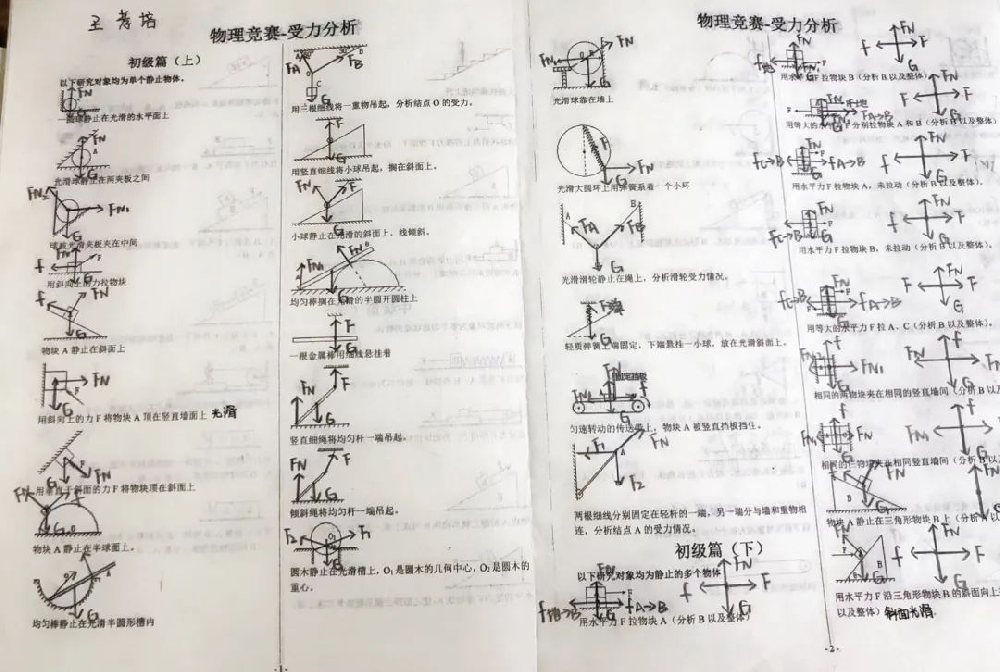 王考培
物理竞赛-受力分析
初级篇（上）
以下研究对象均为单个静止物体。
一圆球静止在光滑的水平面上
光滑球静止在两夹板之间
球被光滑夹板夹在中间
用斜向上的力拉物块
物块 A 静止在斜面上
用斜向上的力 F 将物块 A 顶在竖直墙面上 光滑
用垂直于斜面的力 F 将物块顶在斜面上
物块 A 静止在半球面上。
均匀棒静止在光滑半圆形槽内
用二根细线将一重物吊起，分析结点 O 的受力。
用竖直细绳将小球吊起，搁在斜面上。
小球静止在光滑的斜面上，线倾斜。
均匀棒搁在光滑的半圆开圆柱上
一根金属棒用细线悬挂着
竖直细绳将均匀杆一端吊起。
倾斜绳将均匀杆一端吊起。
圆木静止在光滑槽上，O₁是圆木的几何中心，O₂是圆木的
重心，
-1-
物理竞赛-受力分析
光滑球靠在墙上
光滑大圆环上用弹簧系着一个小环
光滑滑轮静止在绳上，分析滑轮受力情况。
轻质弹簧上端固定，下端悬挂一小球，放在光滑斜面上。
匀速转动的传送带上，物块 A 被竖直挡板挡住。
两根细线分别固定在轻杆的一端，另一端分与墙和重物相
连，分析结点 A 的受力情况。
初级篇（下）
以下研究对象均为静止的多个物体
用水平力 F 拉物块 A（分析 B 以及整体）
用水平力 F 拉物块 B（分析 B 以及整体）
用等大的水平力 F 分别拉物块 A 和 B（分析 B 以及整体）
用水平力 F 拉物块 A，未拉动（分析 B 以及整体）。
用水平力 F 拉物块 B，未拉动（分析 B 以及整体）。
用等大的水平力 F 拉 A、C（分析 B 以及整体）。
相同的两物块夹在相同的竖直墙间（分析 B 以
相同的三物块夹在相同竖直墙间（分析 B 以
物块 A 静止在三角形物块 B 上（分析
用水平力 F 沿三角形物块 B 的斜面向上
以及整体）斜面光滑
-2-